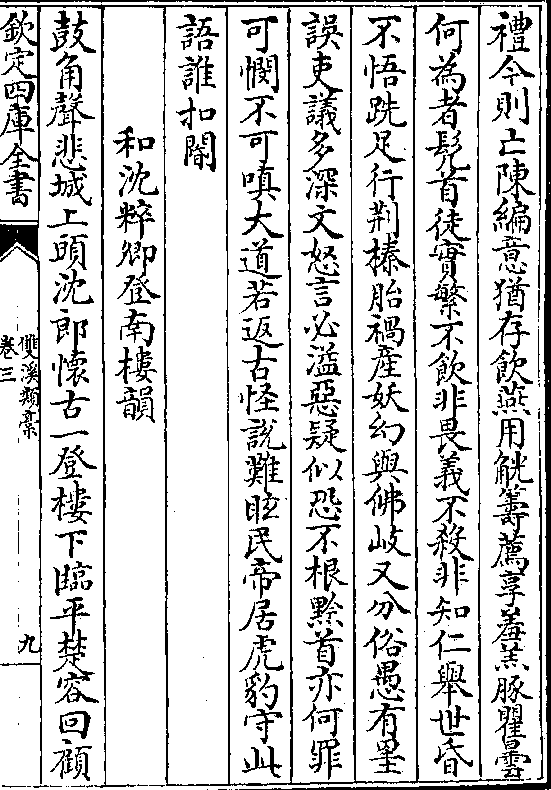 禮今則亡陳編意猶存飲燕用觥籌薦享羞羔豚瞿曇
何為者髠首徒實繁不飲非畏義不殺非知仁舉世昏
不悟跣足行荆榛胎禍產妖幻與佛岐又分俗愚有墨
誤吏議多深文怒言必溢惡疑似恐不根黔首亦何罪
可憫不可嗔大道若返古怪說難眩民帝居虎豹守此
語誰扣閽
和沈粹卿登南樓韻
鼓角聲悲城上頭沈郎懷古一登樓下臨平楚容回顧
欽定四庫全書
雙溪類稾
卷三
九